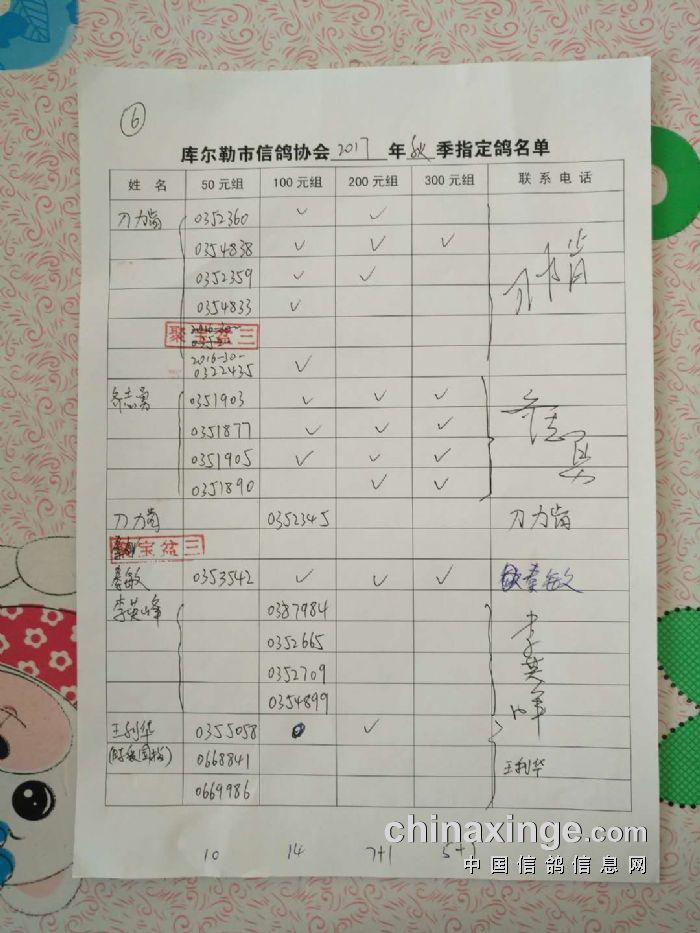 ⑥
库尔勒市信鸽协会 2017 年 秋 季指定鸽名单
姓 名 50元组 100元组 200元组 300元组 联系电话
刁力 0352360 ✓ ✓
0354838 ✓ ✓ ✓
0352359 ✓ ✓
0354833 ✓
聚宝盆三
2016-30-
0322435 ✓
志勇 0351903 ✓ ✓ ✓
0351877 ✓ ✓ ✓
0351905 ✓ ✓ ✓
0351890 ✓ ✓
刁力 0352345 刁力
宝盆三
秦敏 0353542 ✓ ✓ ✓ 秦敏
李英峰 0387984 李英峰
0352665
0352709
0354899
王利华 0355058 ✓
0668841 王利华
0669986
10 14 7+1 5+1
chinaxinge.com
中国信鸽信息网